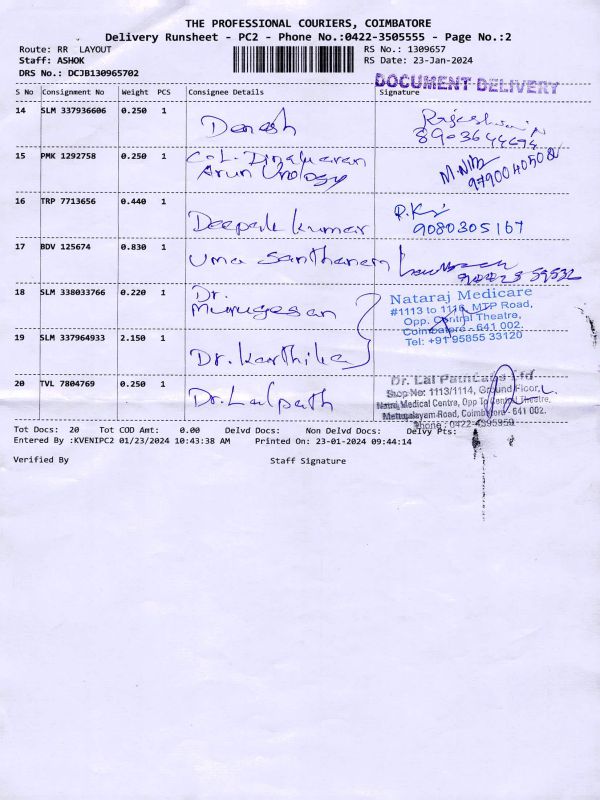 THE PROFESSIONAL COURIERS, COIMBATORE
Delivery Runsheet - PC2 - Phone No.:0422-3505555 - Page No.:2
Route: RR LAYOUT RS No.: 1309657
Staff: ASHOK RS Date: 23-Jan-2024
DRS No.: DCJB130965702
DOCUMENT DELIVERY
S No Consignment No Weight PCS Consignee Details Signature
14 SLM 337936606 0.250 1 Denesh
8903644694
15 PMK 1292758 0.250 1 Col. Dinakaran
Arun Urology
16 TRP 7713656 0.440 1 Deepak kumar
9080305167
17 BDV 125674 0.830 1 Uma Santhanam
18 SLM 338033766 0.220 1 Dr. Murugesan
Nataraj Medicare
#1113 to 1116, MTP Road,
Opp. Central Theatre,
Coimbatore - 641 002.
Tel: +91 95855 33120
19 SLM 337964933 2.150 1 Dr. Karthika
20 TVL 7804769 0.250 1 Dr. Lalpath
Dr. Lal PathLabs Ltd
Shop No: 1113/1114, Ground Floor,
Nataraj Medical Centre, Opp To Central Theatre,
Mettupalayam Road, Coimbatore - 641 002.
Phone : 0422-4395959
Tot Docs: 20 Tot COD Amt: 0.00 Delvd Docs: Non Delvd Docs: Delvy Pts:
Entered By :KVENIPC2 01/23/2024 10:43:38 AM Printed On: 23-01-2024 09:44:14
Verified By Staff Signature